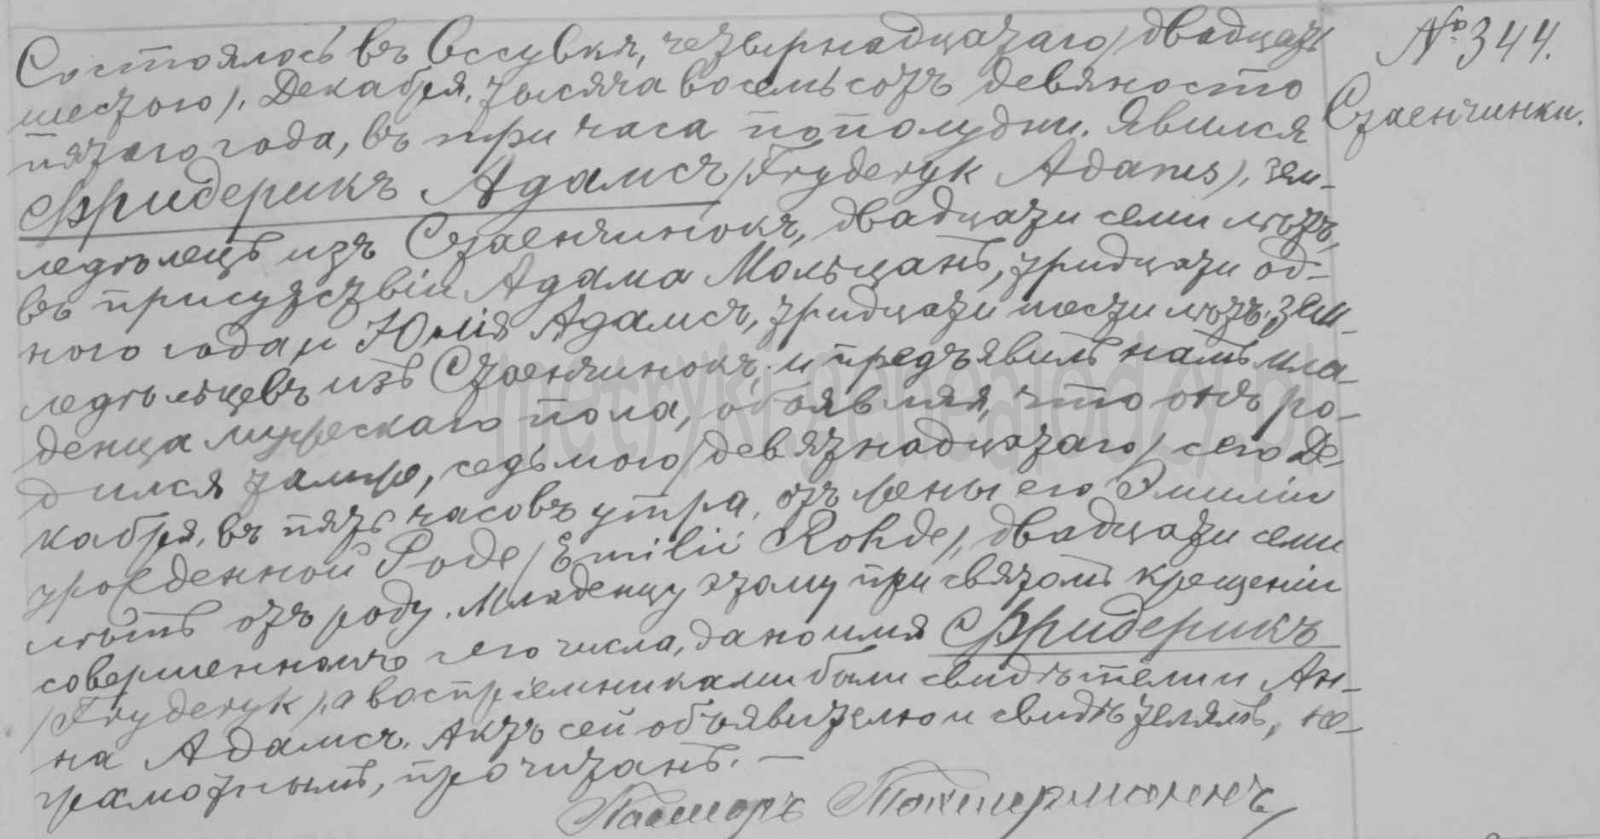 Состоялось въ Оссувкѣ, четырнадцатаго (двадцать
шестого), Декабря, тысяча восемьсотъ девяносто
пятаго года, въ три часа пополудни. Явился
Фридерикъ Адамсъ (Fryderyk Adams), зем-
ледѣлецъ изъ Стаенчинокъ, двадцати семи лѣтъ,
въ присутствіи Адама Мольцанъ, тридцати од-
ного года и Юлія Адамсъ, тридцати шести лѣтъ, зем-
ледѣльцевъ изъ Стаенчинокъ, и предъявилъ намъ мла-
денца мужескаго пола, объявляя, что онъ ро-
дился тамже, седьмого (девятнадцатаго) сего Де-
кабря, въ пять часовъ утра, отъ жены его Эмиліи
урожденной Роде (Emilii Rohde), двадцати семи
лѣтъ отъ роду. Младенцу этому при святомъ крещеніи
совершенномъ сего числа, дано имя Фридерикъ
(Fryderyk), а воспріемниками были свидѣтели и Ан-
на Адамсъ. Актъ сей объявителю и свидѣтелямъ, не-
грамотнымъ, прочитанъ. —
Пасторъ
№ 344.
Стаенчинки.
metryki.genealodzy.pl